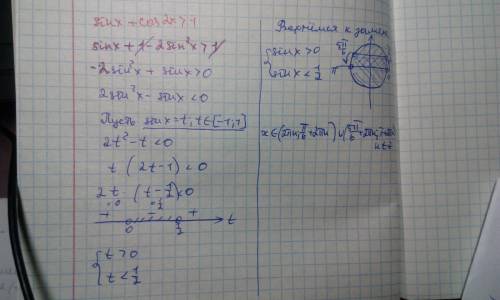 sinx + cos2x > 1
sinx + 1 - 2sin²x > 1
-2sin²x + sinx > 0
2sin²x - sinx < 0
Пусть sinx = t, t∈[-1, 1]
2t² - t < 0
t (2t-1) < 0
2t · (t - 1/2) < 0
0 1/2
+ - + t
0 1/2
{ t > 0
{ t < 1/2
Вернёмся к замен
{ sinx > 0
{ sinx < 1/2
5π/6
π
x∈(2πn; π/6 + 2πn) ∪ (5π/6 + 2πn;
n∈Z